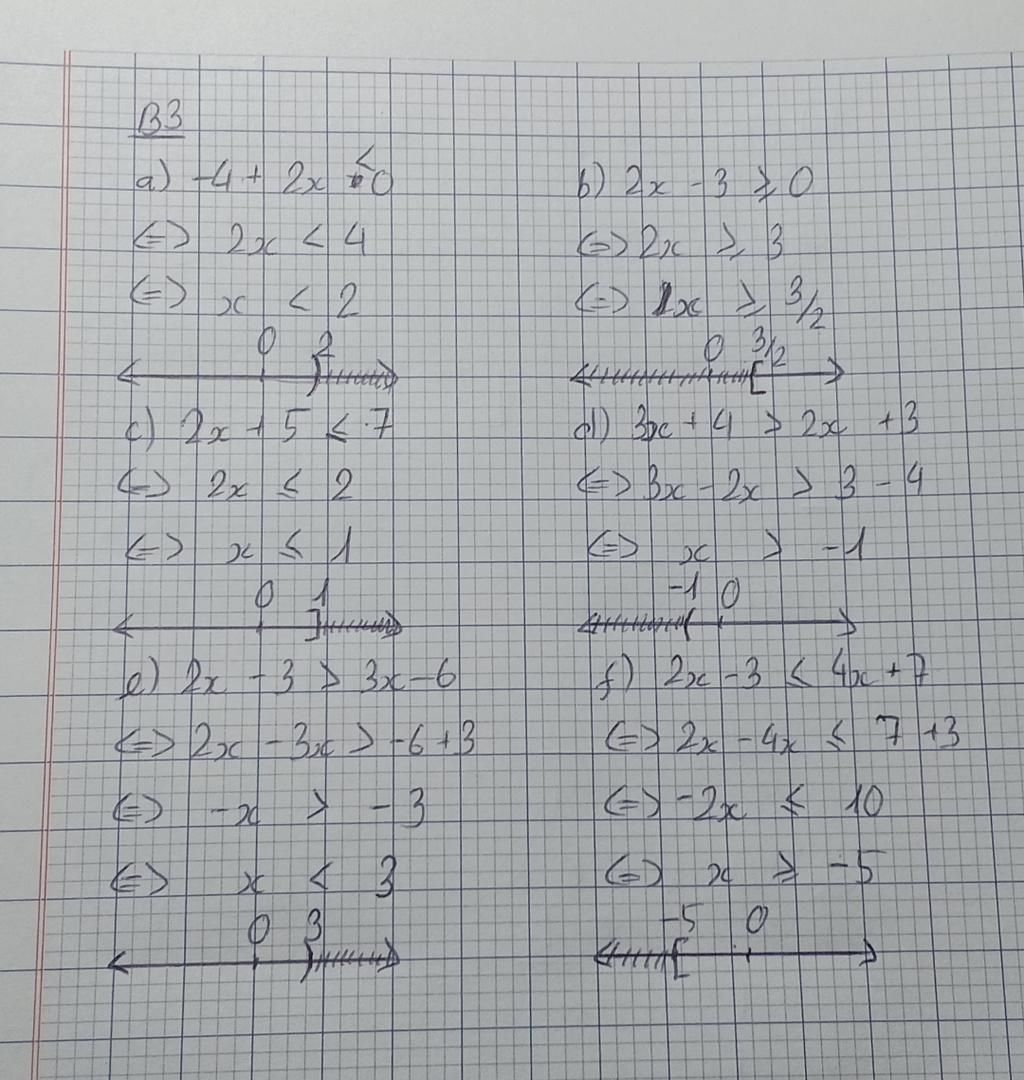 B3
a) -4 + 2x < 0
<=> 2x < 4
<=> x < 2
0 2
b) 2x - 3 ⩾ 0
<=> 2x ⩾ 3
<=> 1x ⩾ 3/2
0 3/2
c) 2x + 5 ⩽ 7
<=> 2x ⩽ 2
<=> x ⩽ 1
0 1
d) 3x + 4 > 2x + 3
<=> 3x - 2x > 3 - 4
<=> x > -1
-1 0
e) 2x - 3 > 3x - 6
<=> 2x - 3x > -6 + 3
<=> -x > -3
<=> x < 3
0 3
f) 2x - 3 ⩽ 4x + 7
<=> 2x - 4x ⩽ 7 + 3
<=> -2x ⩽ 10
<=> x ⩾ -5
-5 0